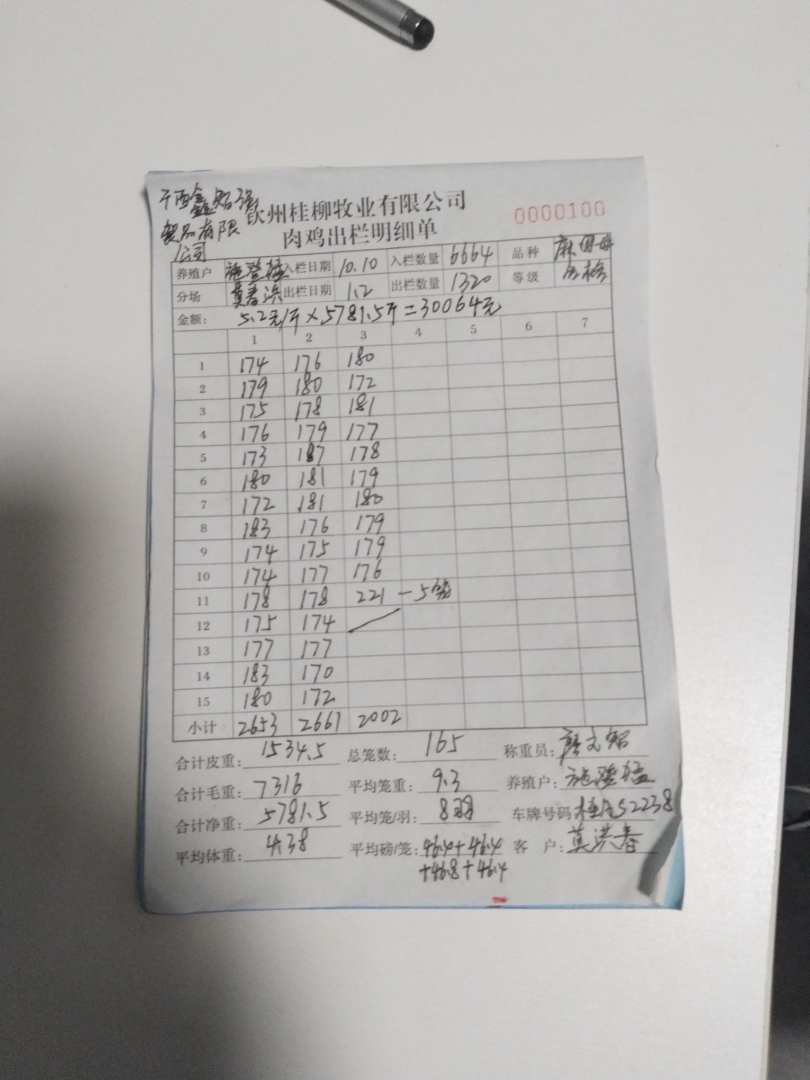 钦州桂柳牧业有限公司
0000100
肉鸡出栏明细单
有限
公司
养殖户 入栏日期 10.10 入栏数量 6664 品种
分场 莫春洪 出栏日期 1.2 出栏数量 1320 等级 合格
金额: 5.2元/斤×5781.5斤=30064元
1 2 3 4 5 6 7
1 174 176 180
2 179 180 172
3 175 178 181
4 176 179 177
5 173 187 178
6 180 181 179
7 172 181 180
8 183 176 179
9 174 175 179
10 174 177 176
11 178 178 221 - 5笼
12 175 174
13 177 177
14 183 170
15 180 172
小计 2653 2661 2002
合计皮重: 1534.5 总笼数: 165 称重员:
合计毛重: 7316 平均笼重: 9.3 养殖户:
合计净重: 5781.5 平均笼/羽: 8羽 车牌号码
平均体重: 4.38 平均磅/笼: 46.4+46.4 客 户: 莫洪春
+46.8+46.4